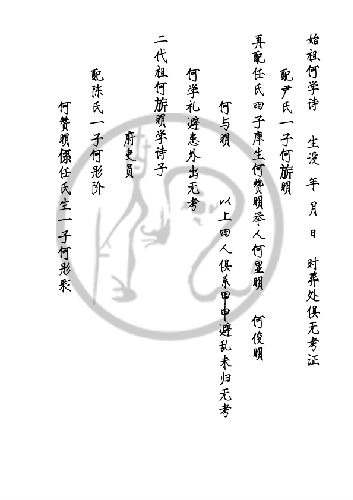 始祖何学诗 生没 年 月 日 时葬处俱无考证
配尹氏一子何旂明
真配任氏四子庠生何赞明丞人何显明 何俊明
何与明 以上四人俱系甲申避乱未归无考
何学礼避患外出无考
二代祖何旂明学诗子
府吏员
配陈氏一子何彤阶
何赞明係任氏生一子何彤采